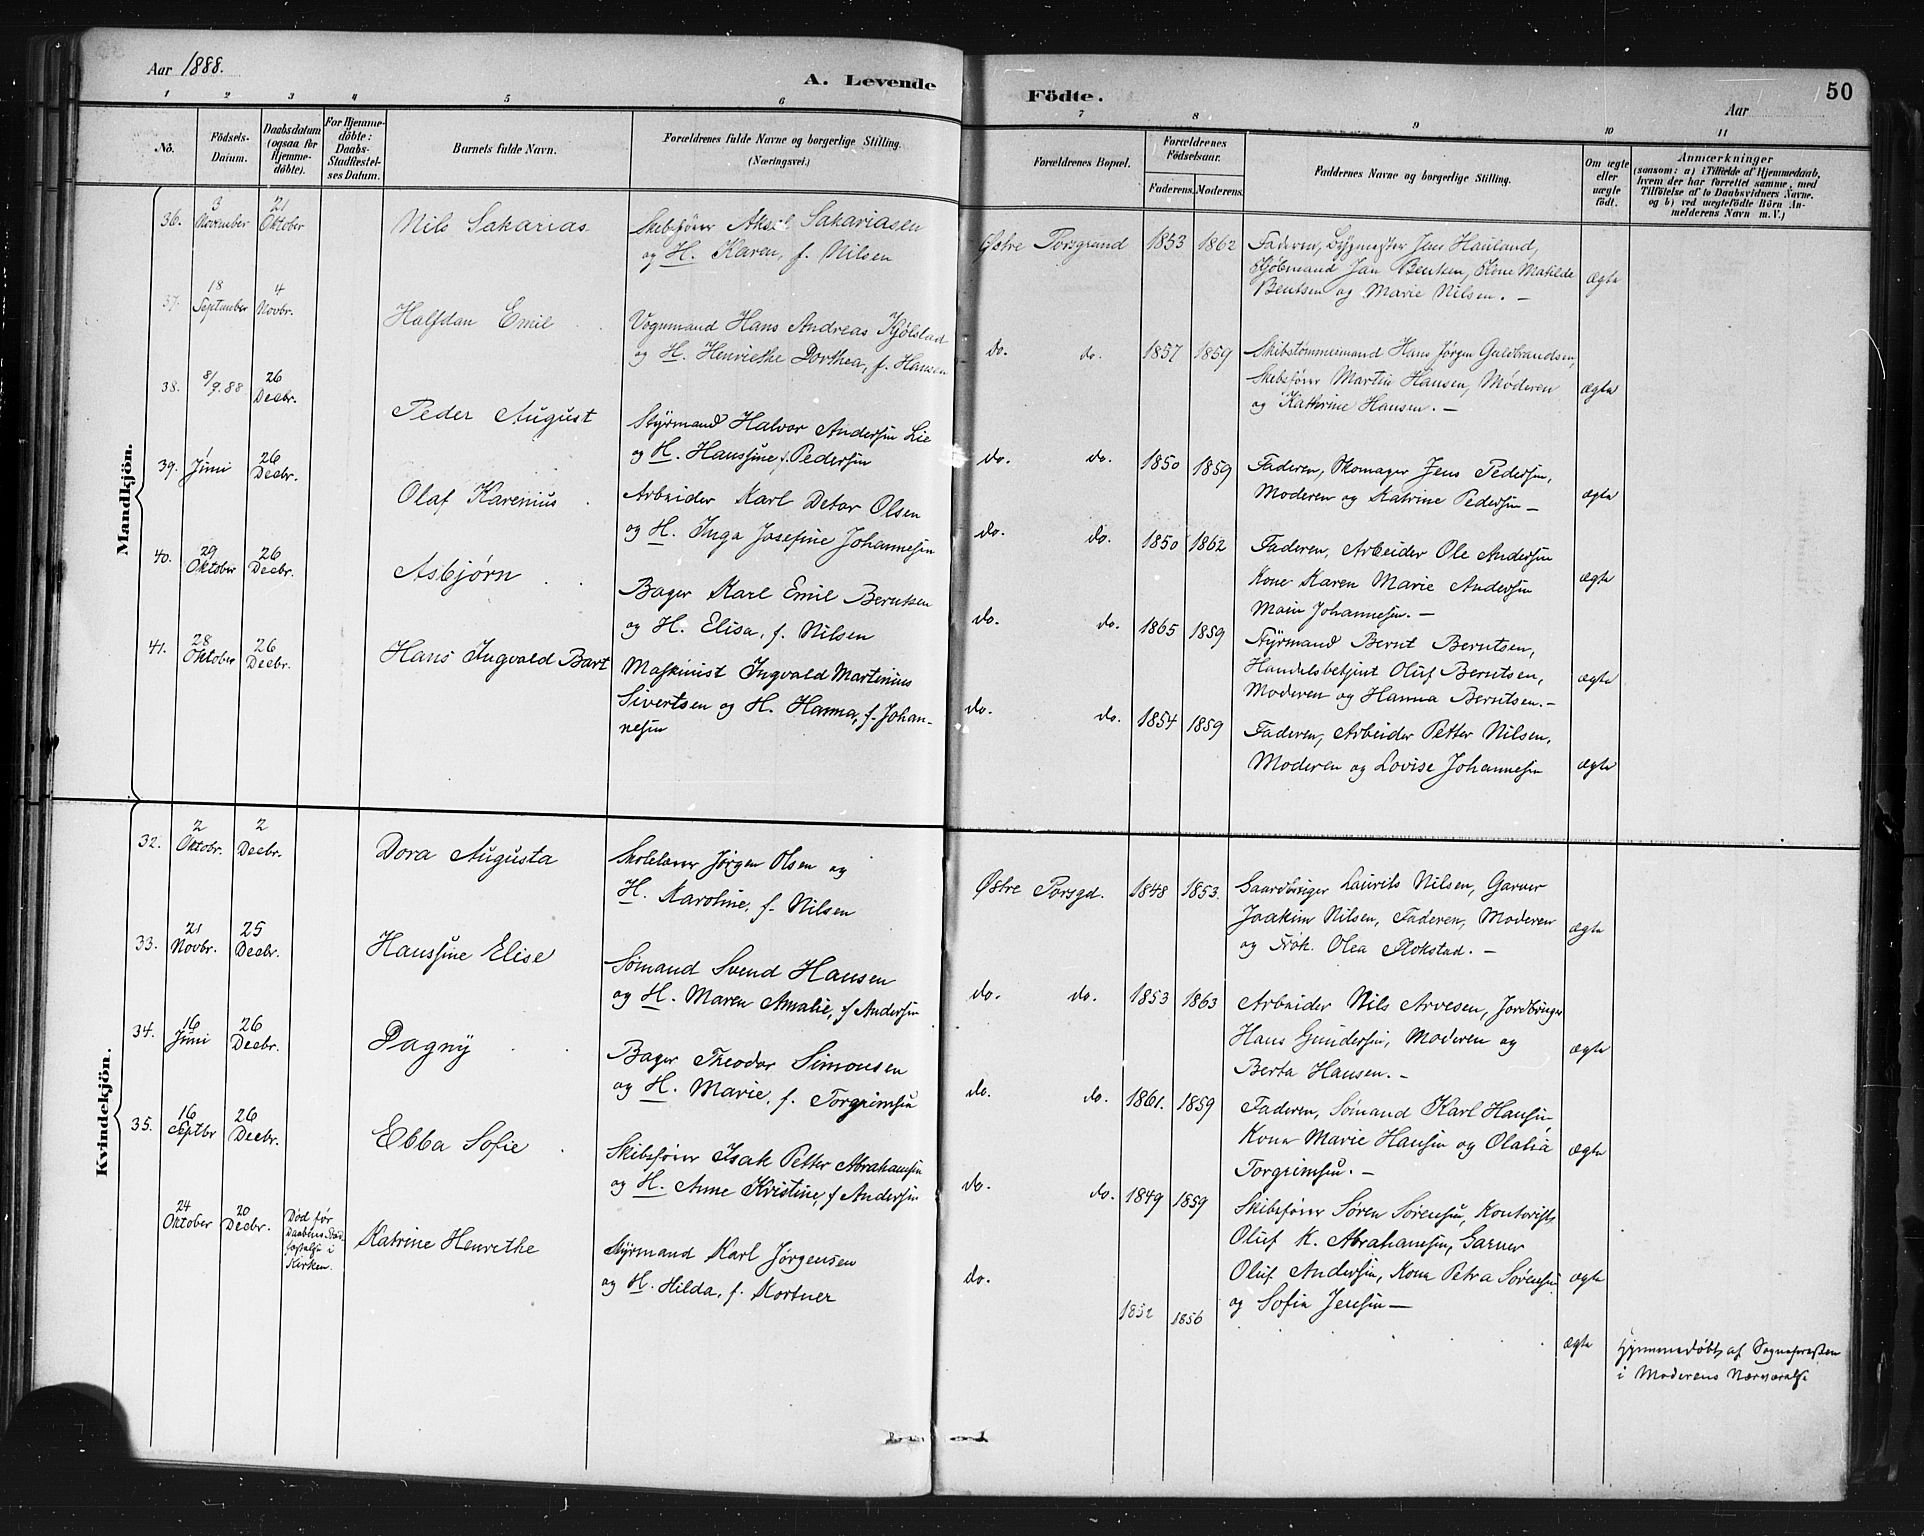 Aar 1888.
A. Levende
Födte.
Aar
50
1 2 3 4 5 6 7 8 9 10 11
No.
Födsels-
Datum.
Daabsdatum
(ogsaa for
Hjemme-
döbte).
For Hjemme-
döbte:
Daabs-
Stadfæstel-
ses Datum.
Barnets fulde Navn.
Forældrenes fulde Navne og borgerlige Stilling.
(Næringsvei.)
Forældrenes Bopæl.
Forældrenes
Födselsaar.
Faderens.
Moderens.
Faddernes Navne og borgerlige Stilling.
Om ægte
eller
uægte
födt.
Anmærkninger
(saasom: a) i Tilfælde af Hjemmedaab,
hvem der har forrettet samme, med
Tilföielse af to Daabsvidners Navne.
og b) ved uægtefödte Börn An-
melderens Navn m. V.)
Mandkjön.
36.
3
November
21
Oktober
Nils Sakarias
Skibsfører Aksel Sakariasen
og H. Karen, f. Nilsen
Østre Porsgrund
1853
1862
Faderen, Jens Hauland,
Kjøbmand Jan Bentsen, Kone Matilde
Bentsen og Marie Nilsen. —
ægte
37.
18
September
4
Novbr.
Halfdan Emil
Vognmand Hans Andreas Kjølstad
og H. Henriethe Dorthea, f. Hansen
do. do.
1857
1859
Skibstømmermand Hans Jørgen Guldbrandsen,
Skibsfører Martin Hansen, Moderen
og Kathrine Hansen. —
ægte
38.
8/9. 88
26
Decbr.
Peder August
Styrmand Halvor Andersen Lie
og H. Hanssine f. Pedersen
do. do.
1850
1859
Faderen, Skomager Jens Pedersen,
Moderen og Katrine Pedersen —
ægte
39.
Juni
26
Decbr.
Olaf Karenius
Arbeider Karl Detov Olsen
og H. Inga Josefine Johannesen
do. do.
1850
1862
Faderen, Arbeider Ole Andersen
Kone Karen Marie Andersen
Johannesen. —
ægte
40.
29
Oktober
26
Decbr.
Asbjørn
Bager Karl Emil Berntsen
og H. Elisa, f. Nilsen
do. do.
1865
1859
Styrmand Bernt Berntsen,
Handelsbetjent Oluf Berntsen,
Moderen og Hanna Berntsen. —
ægte
41.
28
Oktober
26
Decbr.
Hans Ingvald Bart
Maskinist Ingvald Martinius
Sivertsen og H. Hanna, f. Johan-
nesen
do. do.
1854
1859
Faderen, Arbeider Petter Nilsen,
Moderen og Lovise Johannesen
ægte
Kvindekjön.
32.
2
Oktobr.
2
Decbr.
Dora Augusta
Skolelærer Jørgen Olsen og
H. Karoline, f. Nilsen
Østre Porsgd.
1848
1853.
Gaardbruger Laurits Nilsen, Garver
Joakim Nilsen, Faderen, Moderen
og Frøk. Olea Flokstad. —
ægte
33.
21
Novbr.
25
Decbr.
Hanssine Elise
Sømand Svend Hansen
og H. Maren Amalie, f Andersen
do. do.
1853
1863
Arbeider Nils Arvesen, Jordbruger
Hans Gundersen, Moderen og
Berta Hansen. —
ægte
34.
16
Juni
26
Decbr.
Dagny
Bager Theodor Simonsen
og H. Marie, f. Torgrimsen
do. do.
1861.
1859
Faderen, Sømand Karl Hansen,
Kone Marie Hansen og Olalia
Torgrimsen. —
ægte
35.
16
Septbr
26
Decbr.
Ebba Sofie
Skibsfører Isak Petter Abrahamsen
og H. Anne Kristine, f Andersen
do. do.
1849
1859
Skibsfører Søren Sørensen, Kontorist
Oluf K. Abrahamsen, Garver
Oluf Andersen, Kone Petra Sørensen
og Sofie Jensen —
ægte
24
Oktober
20
Decbr.
Død før
Daabens Stad-
fæstelse i
Kirken.
Katrine Henrethe
Styrmand Karl Jørgensen
og H. Hilda, f. Kortner
do.
1852
1856
ægte
Hjemmedøbt af Sognepresten
i Moderens Nærværelse